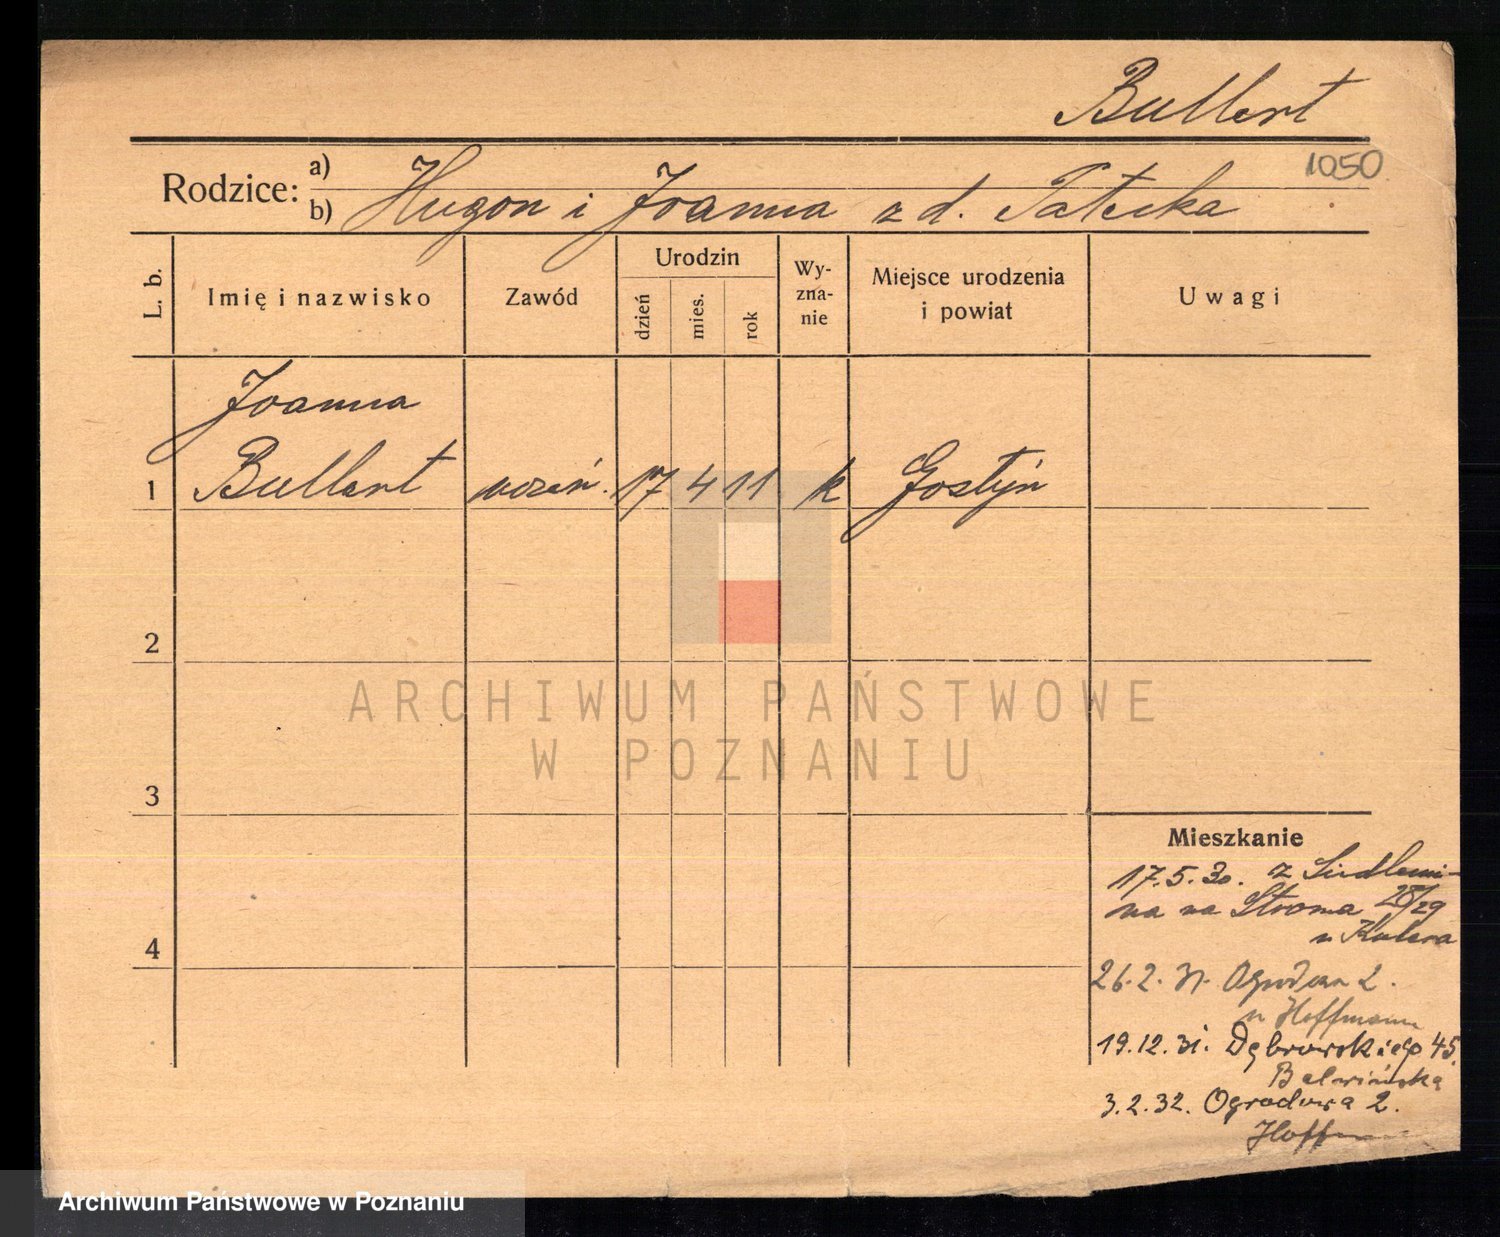 Bullert
1050
Rodzice: a)
b) Hugon i Joanna z d. Tatecka
L. b.
Imię i nazwisko
Zawód
Urodzin
dzień
mies.
rok
Wy-
zna-
nie
Miejsce urodzenia
i powiat
Uwagi
Joanna
1 Bullert uczeń. 17 4 11 k Gostyń
2
ARCHIWUM PAŃSTWOWE
W POZNANIU
3
Mieszkanie
17.5.30. z
na na Stroma 28/29
u
4
26.2.31. Ogrodowa 2.
u Hoffmann
19.12.31. Dąbrowskiego 45.
3.2.32. Ogrodowa 2.
Archiwum Państwowe w Poznaniu